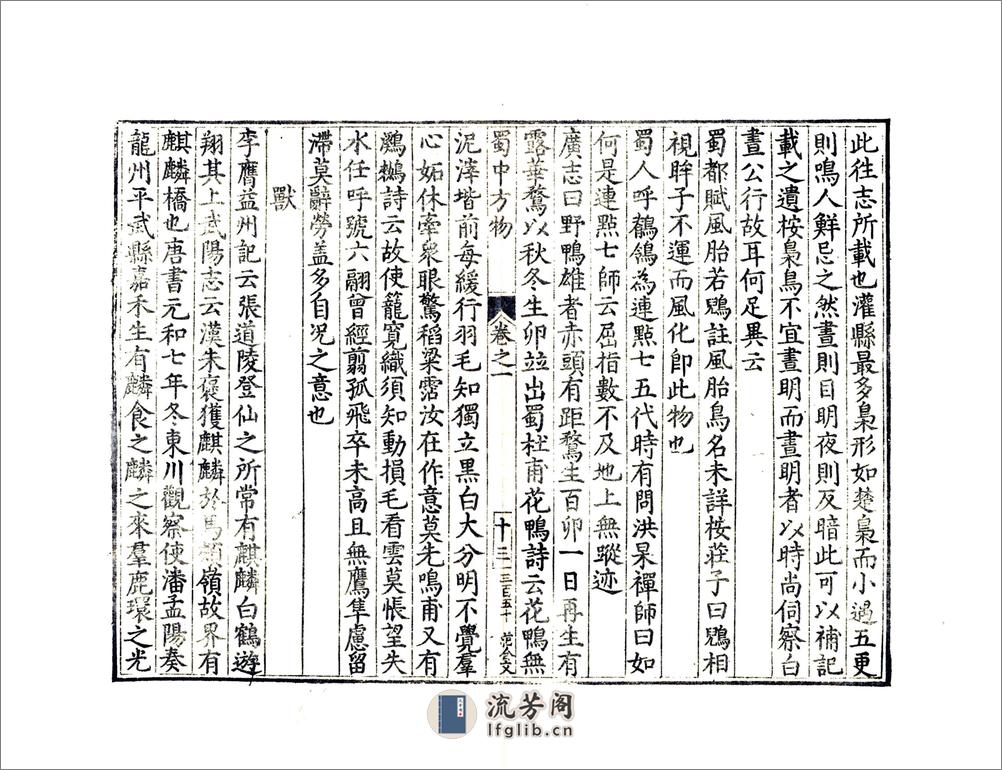 此往志所載也灌縣最多梟形如楚梟而小過五更
則鳴人鮮忌之然晝則目明夜則反暗此可以補記
載之遺桉梟鳥不宜晝明而晝明者以時尚伺察白
晝公行故耳何足異云
蜀都賦風胎若鶂註風胎鳥名未詳桉莊子曰鶂相
視眸子不運而風化卽此物也
蜀人呼鶺鴒為連點七五代時有問洪杲禪師曰如
何是連點七師云屈指數不及地上無蹤迹
廣志曰野鴨雄者赤頭有距鶩生百卵一日再生有
露華鶩以秋冬生卵並出蜀杜甫花鴨詩云花鴨無
蜀中方物 卷之一 十三 三百五十 范介文
泥滓堦前每緩行羽毛知獨立黑白大分明不覺羣
心妬休牽衆眼驚稻粱霑汝在作意莫先鳴甫又有
鸂鶒詩云故使籠寬織須知動損毛看雲莫悵望失
水任呼號六翮曾經翦孤飛卒未高且無鷹隼慮留
滯莫辭勞盖多自況之意也
獸
李膺益州記云張道陵登仙之所常有麒麟白鶴遊
翔其上武陽志云漢朱褒獲麒麟於馬嶺故界有
麒麟橋也唐書元和七年冬東川觀察使潘孟陽奏
龍州平武縣嘉禾生有麟食之麟之來羣鹿環之光
流芳阁
lfglib.cn